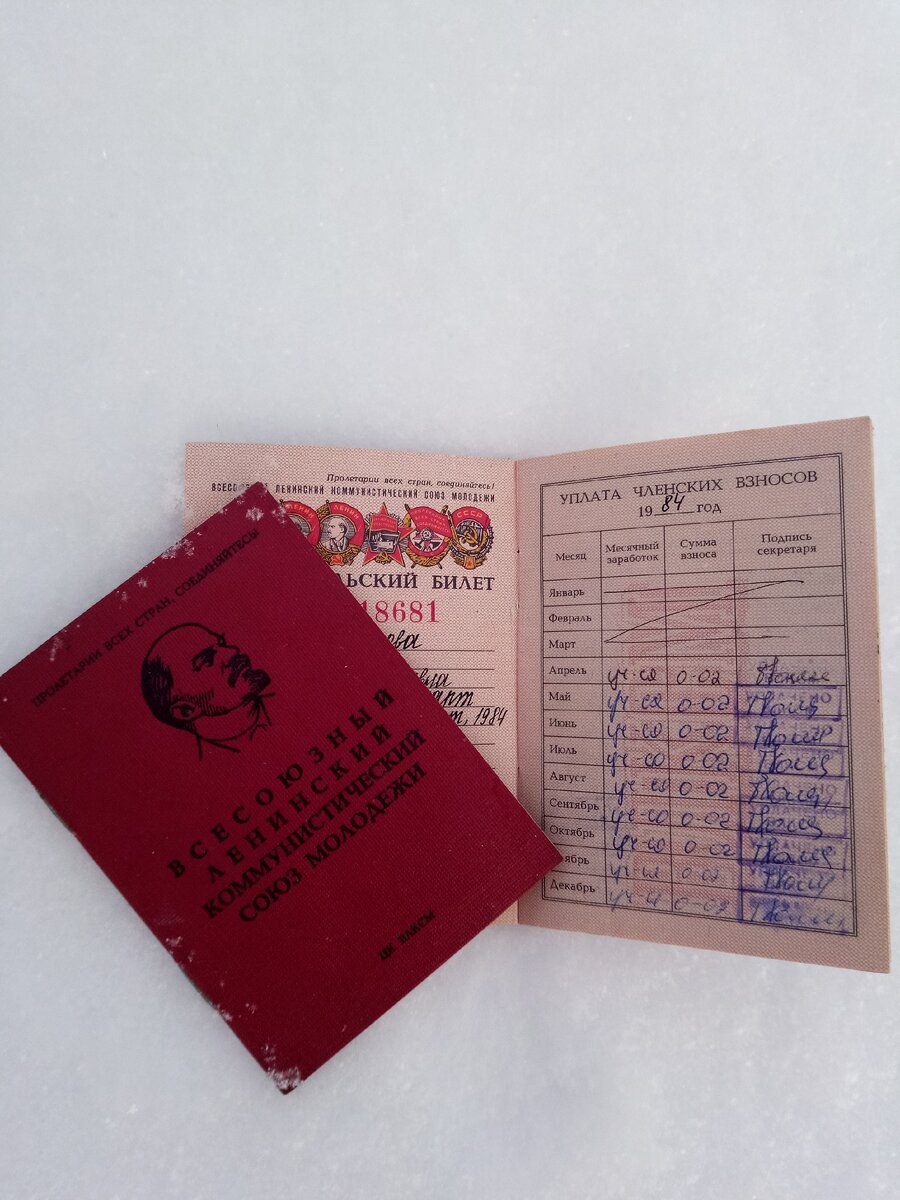 ПРОЛЕТАРИИ ВСЕХ СТРАН, СОЕДИНЯЙТЕСЬ!
ВСЕСОЮЗНЫЙ
ЛЕНИНСКИЙ
КОММУНИСТИЧЕСКИЙ
СОЮЗ МОЛОДЕЖИ
ЦК ВЛКСМ
Пролетарии всех стран, соединяйтесь!
ЛЕНИНСКИЙ КОММУНИСТИЧЕСКИЙ СОЮЗ МОЛОДЕЖИ
ЛЕНИН
СССР
ЬСКИЙ БИЛЕТ
18681
ева
вла
арт
т, 1984
УПЛАТА ЧЛЕНСКИХ ВЗНОСОВ
1984 год
Месяц Месячный заработок Сумма взноса Подпись секретаря
Январь
Февраль
Март
Апрель уч-ся 0-02
Май уч-ся 0-02
Июнь уч-ся 0-02
Июль уч-ся 0-02
Август уч-ся 0-02
Сентябрь уч-ся 0-02
Октябрь уч-ся 0-02
ябрь уч-ся 0-02
Декабрь уч-ся 0-02